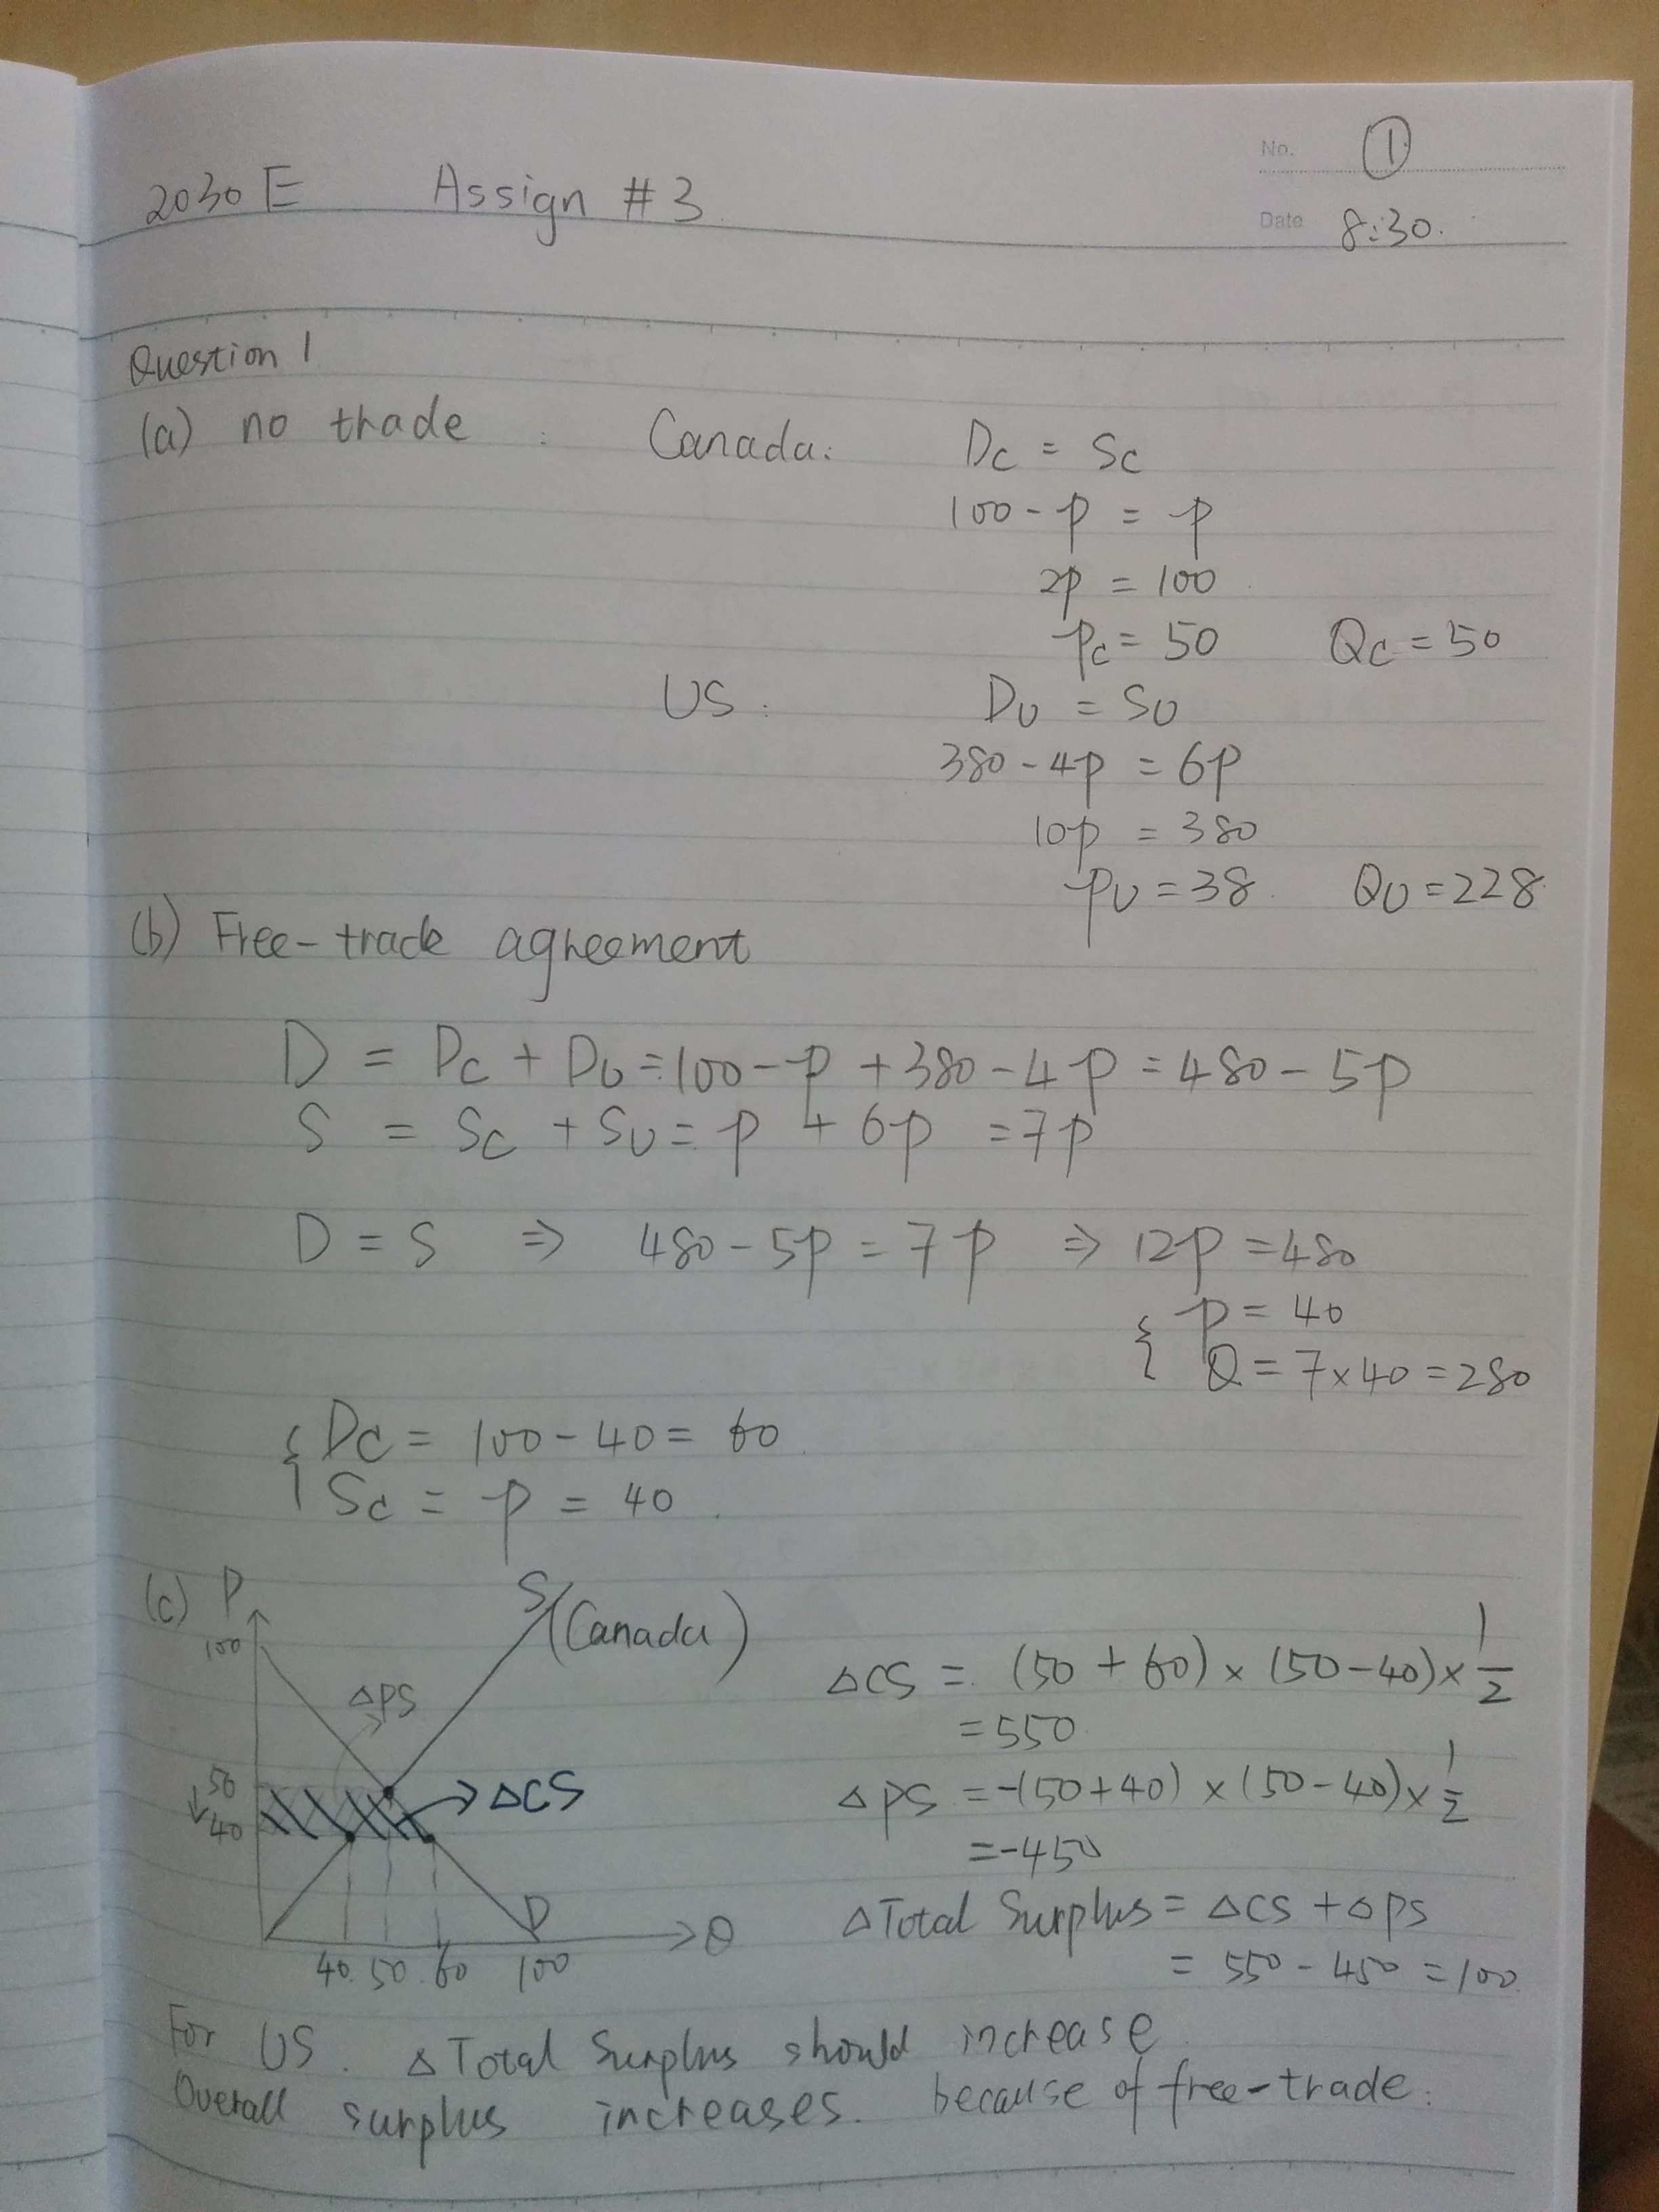 No. ①
2030 E Assign #3
Date 8:30.
Question 1
(a) no trade : Canada: Dc = Sc
100 - p = p
2p = 100
Pc = 50 Qc = 50
US: DU = SU
380 - 4p = 6p
10p = 380
PU = 38. QU = 228.
(b) Free-trade agreement
D = Dc + DU = 100 - p + 380 - 4p = 480 - 5p
S = Sc + SU = p + 6p = 7p
D = S ⇒ 480 - 5p = 7p ⇒ 12p = 480
{ p = 40
Q = 7×40 = 280
{ Dc = 100 - 40 = 60
Sc = p = 40.
(c) P
S (Canada)
100
ΔPS
50
↓
40
→ ΔCS
D
Q
40 50 60 100
ΔCS = (50 + 60) × (50 - 40) × 1/2
= 550
ΔPS = -(50+40) × (50-40) × 1/2
= -450
ΔTotal Surplus = ΔCS + ΔPS
= 550 - 450 = 100.
For US. ΔTotal Surplus should increase.
Overall surplus increases. because of free-trade.